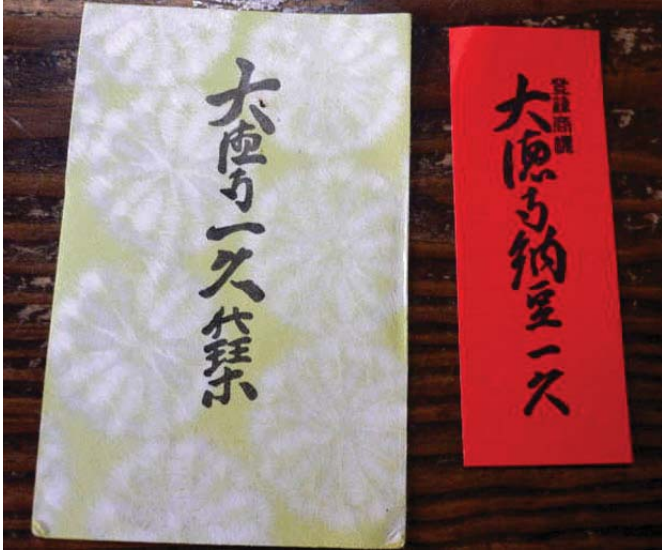 大徳寺一久
登録商標
大徳寺納豆一久